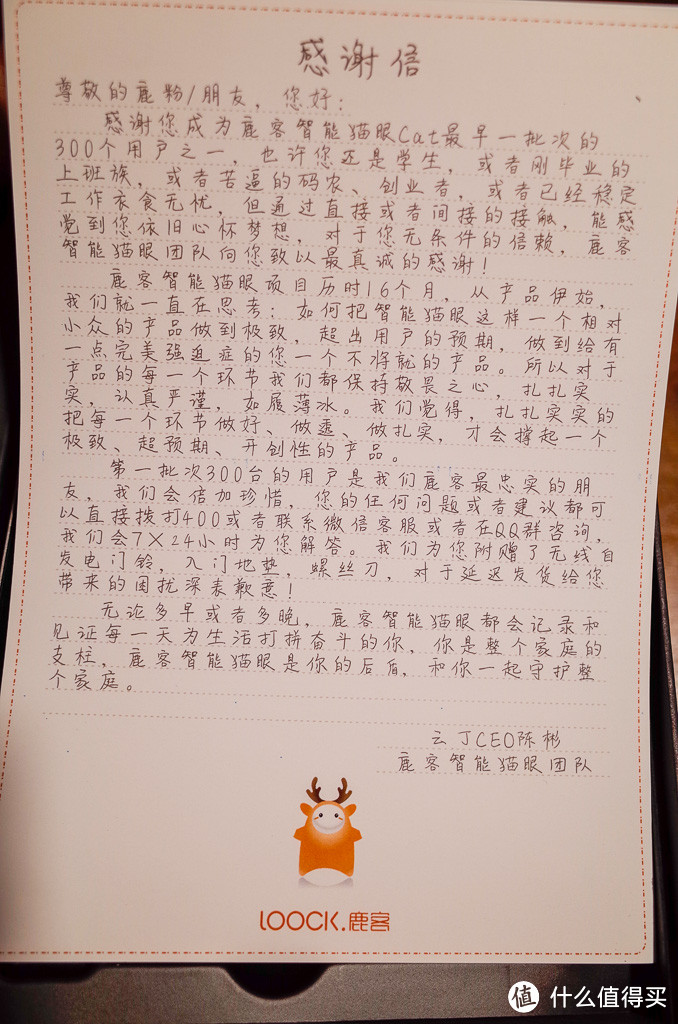 感谢信
尊敬的鹿粉/朋友，您好：
感谢您成为鹿客智能猫眼Cat最早一批次的
300个用户之一，也许您还是学生，或者刚毕业的
上班族，或者苦逼的码农、创业者，或者已经稳定
工作衣食无忧，但通过直接或者间接的接触，能感
觉到您依旧心怀梦想，对于您无条件的信赖，鹿客
智能猫眼团队向您致以最真诚的感谢！
鹿客智能猫眼项目历时16个月，从产品伊始，
我们就一直在思考：如何把智能猫眼这样一个相对
小众的产品做到极致，超出用户的预期，做到给有
一点完美强迫症的您一个不将就的产品。所以对于
产品的每一个环节我们都保持敬畏之心，扎扎实
实，认真严谨，如履薄冰。我们觉得，扎扎实实的
把每一个环节做好、做透、做扎实，才会撑起一个
极致、超预期、开创性的产品。
第一批次300台的用户是我们鹿客最忠实的朋
友，我们会倍加珍惜，您的任何问题或者建议都可
以直接拨打400或者联系微信客服或者在QQ群咨询，
我们会7×24小时为您解答。我们为您附赠了无线自
发电门铃，入门地垫，螺丝刀，对于延迟发货给您
带来的困扰深表歉意！
无论多早或者多晚，鹿客智能猫眼都会记录和
见证每一天为生活打拼奋斗的你，你是整个家庭的
支柱，鹿客智能猫眼是你的后盾，和你一起守护整
个家庭。
云丁CEO陈彬
鹿客智能猫眼团队
LOOCK.鹿客
值 什么值得买